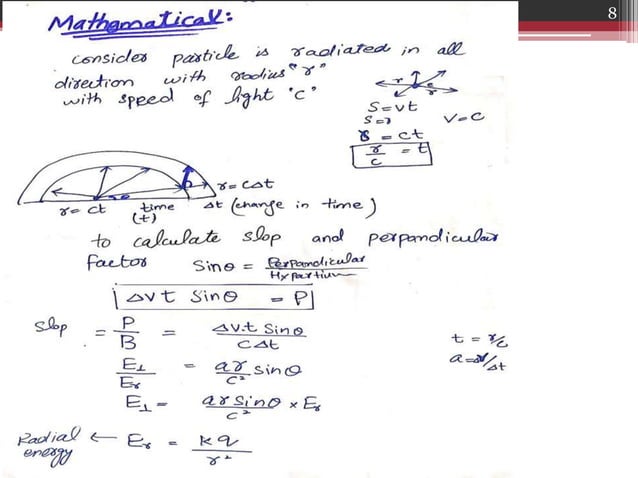 8
Mathematical:
consider particle is radiated in all
direction with radius "r"
with speed of light 'c'
r r e
S=vt
S=r V=C
r = ct
r/c = t
r=cΔt
r= ct time (t) Δt (change in time)
to calculate slop and perpendicular
factor Sinθ = Perpendicular/
ΔVt Sinθ = P
Slop = P/B = ΔV.t Sinθ/CΔt
t = r/c
a=
E⊥/Er = ar/c² sinθ
E⊥ = ar sinθ/c² × Er
Radial energy ← Er = kq/r²